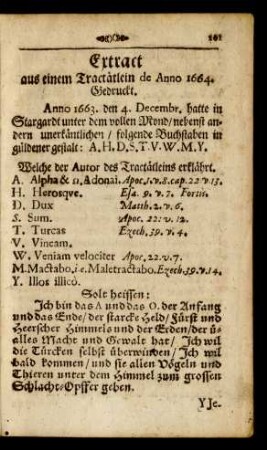 161
Extract
aus einem Tractätlein de Anno 1664.
Gedruckt.
Anno 1663. den 4. Decembr. hatte in
Stargardt unter dem vollen Mond/nebenst an-
dern unerkäntlichen / folgende Buchstaben in
güldener gestalt: A.H.D.S.T.V.W.M.Y.
Welche der Autor des Tractätleins erklährt.
A. Alpha & ω, Adonai. Apoc. 1. v. 8. cap. 22. v. 13.
H. Herosqve. Esa. 9. v. 7. Fortis.
D. Dux Matth. 2. v. 6.
S. Sum. Apoc. 22. v. 12.
T. Turcas Ezech. 39. v. 4.
V. Vincam.
W. Veniam velociter Apoc. 22. v. 7.
M. Mactabo. i.e. Maletractabo. Ezech. 39. v. 14.
Y. Illos illicò.
Solt heissen:
Ich bin das A und das O. der Anfang
und das Ende/ der starcke Held/ Fürst und
Heerscher Himmels und der Erden/ der ü-
alles Macht und Gewalt hat/ Ich wil
die Türcken selbst überwinden/ Ich wil
bald kommen/ und sie allen Vögeln und
Thieren unter dem Himmel zum grossen
Schlacht-Opffer geben.
YJe.